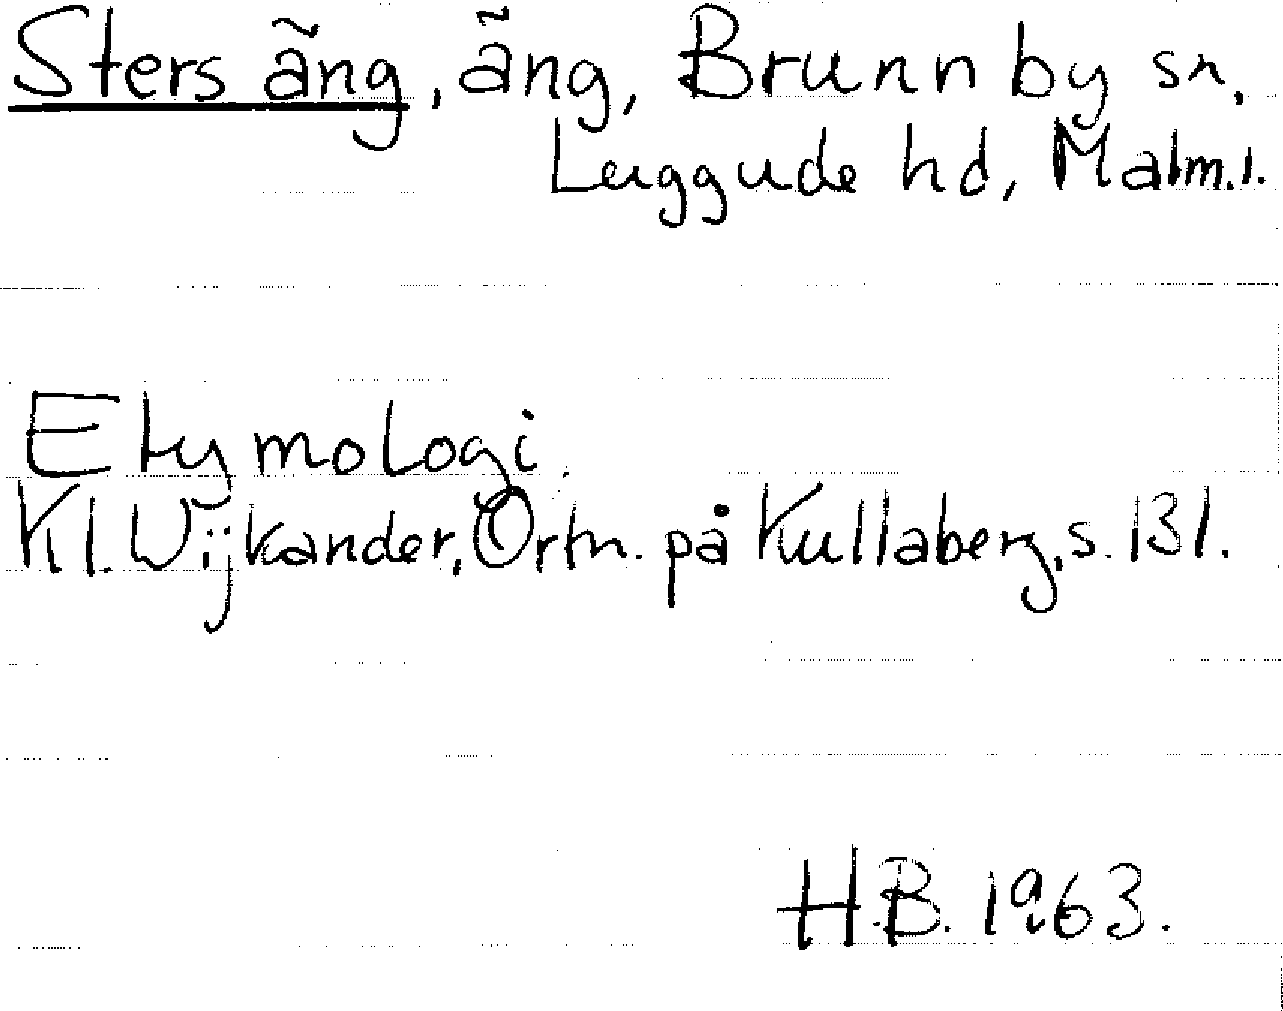 Sters äng, äng, Brunnby sn,
Luggude hd, Malm.l.
Etymologi.
Kl. Wijkander, Ortn. på Kullaberg, s. 131.
H.B. 1963.